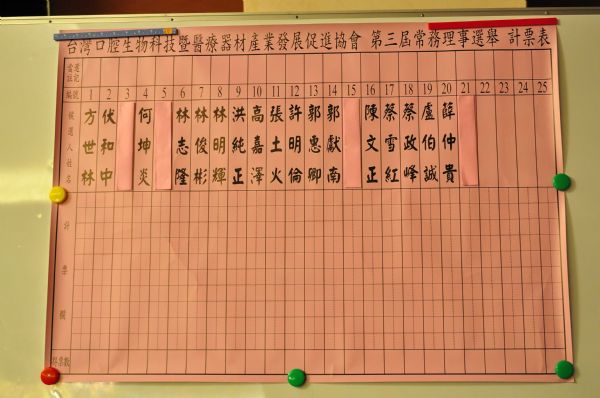 台灣口腔生物科技暨醫療器材產業發展促進協會 第三屆常務理事選舉 計票表
當選註記
編號 1 2 3 4 5 6 7 8 9 10 11 12 13 14 15 16 17 18 19 20 21 22 23 24 25
候選人姓名
方世林
伏和中
何坤炎
林志隆
林俊彬
林明輝
洪純正
高嘉澤
張土火
許明倫
郭惠卿
郭獻南
陳文正
蔡雪紅
蔡政峰
盧伯誠
薛仲貴
計票欄
得票數